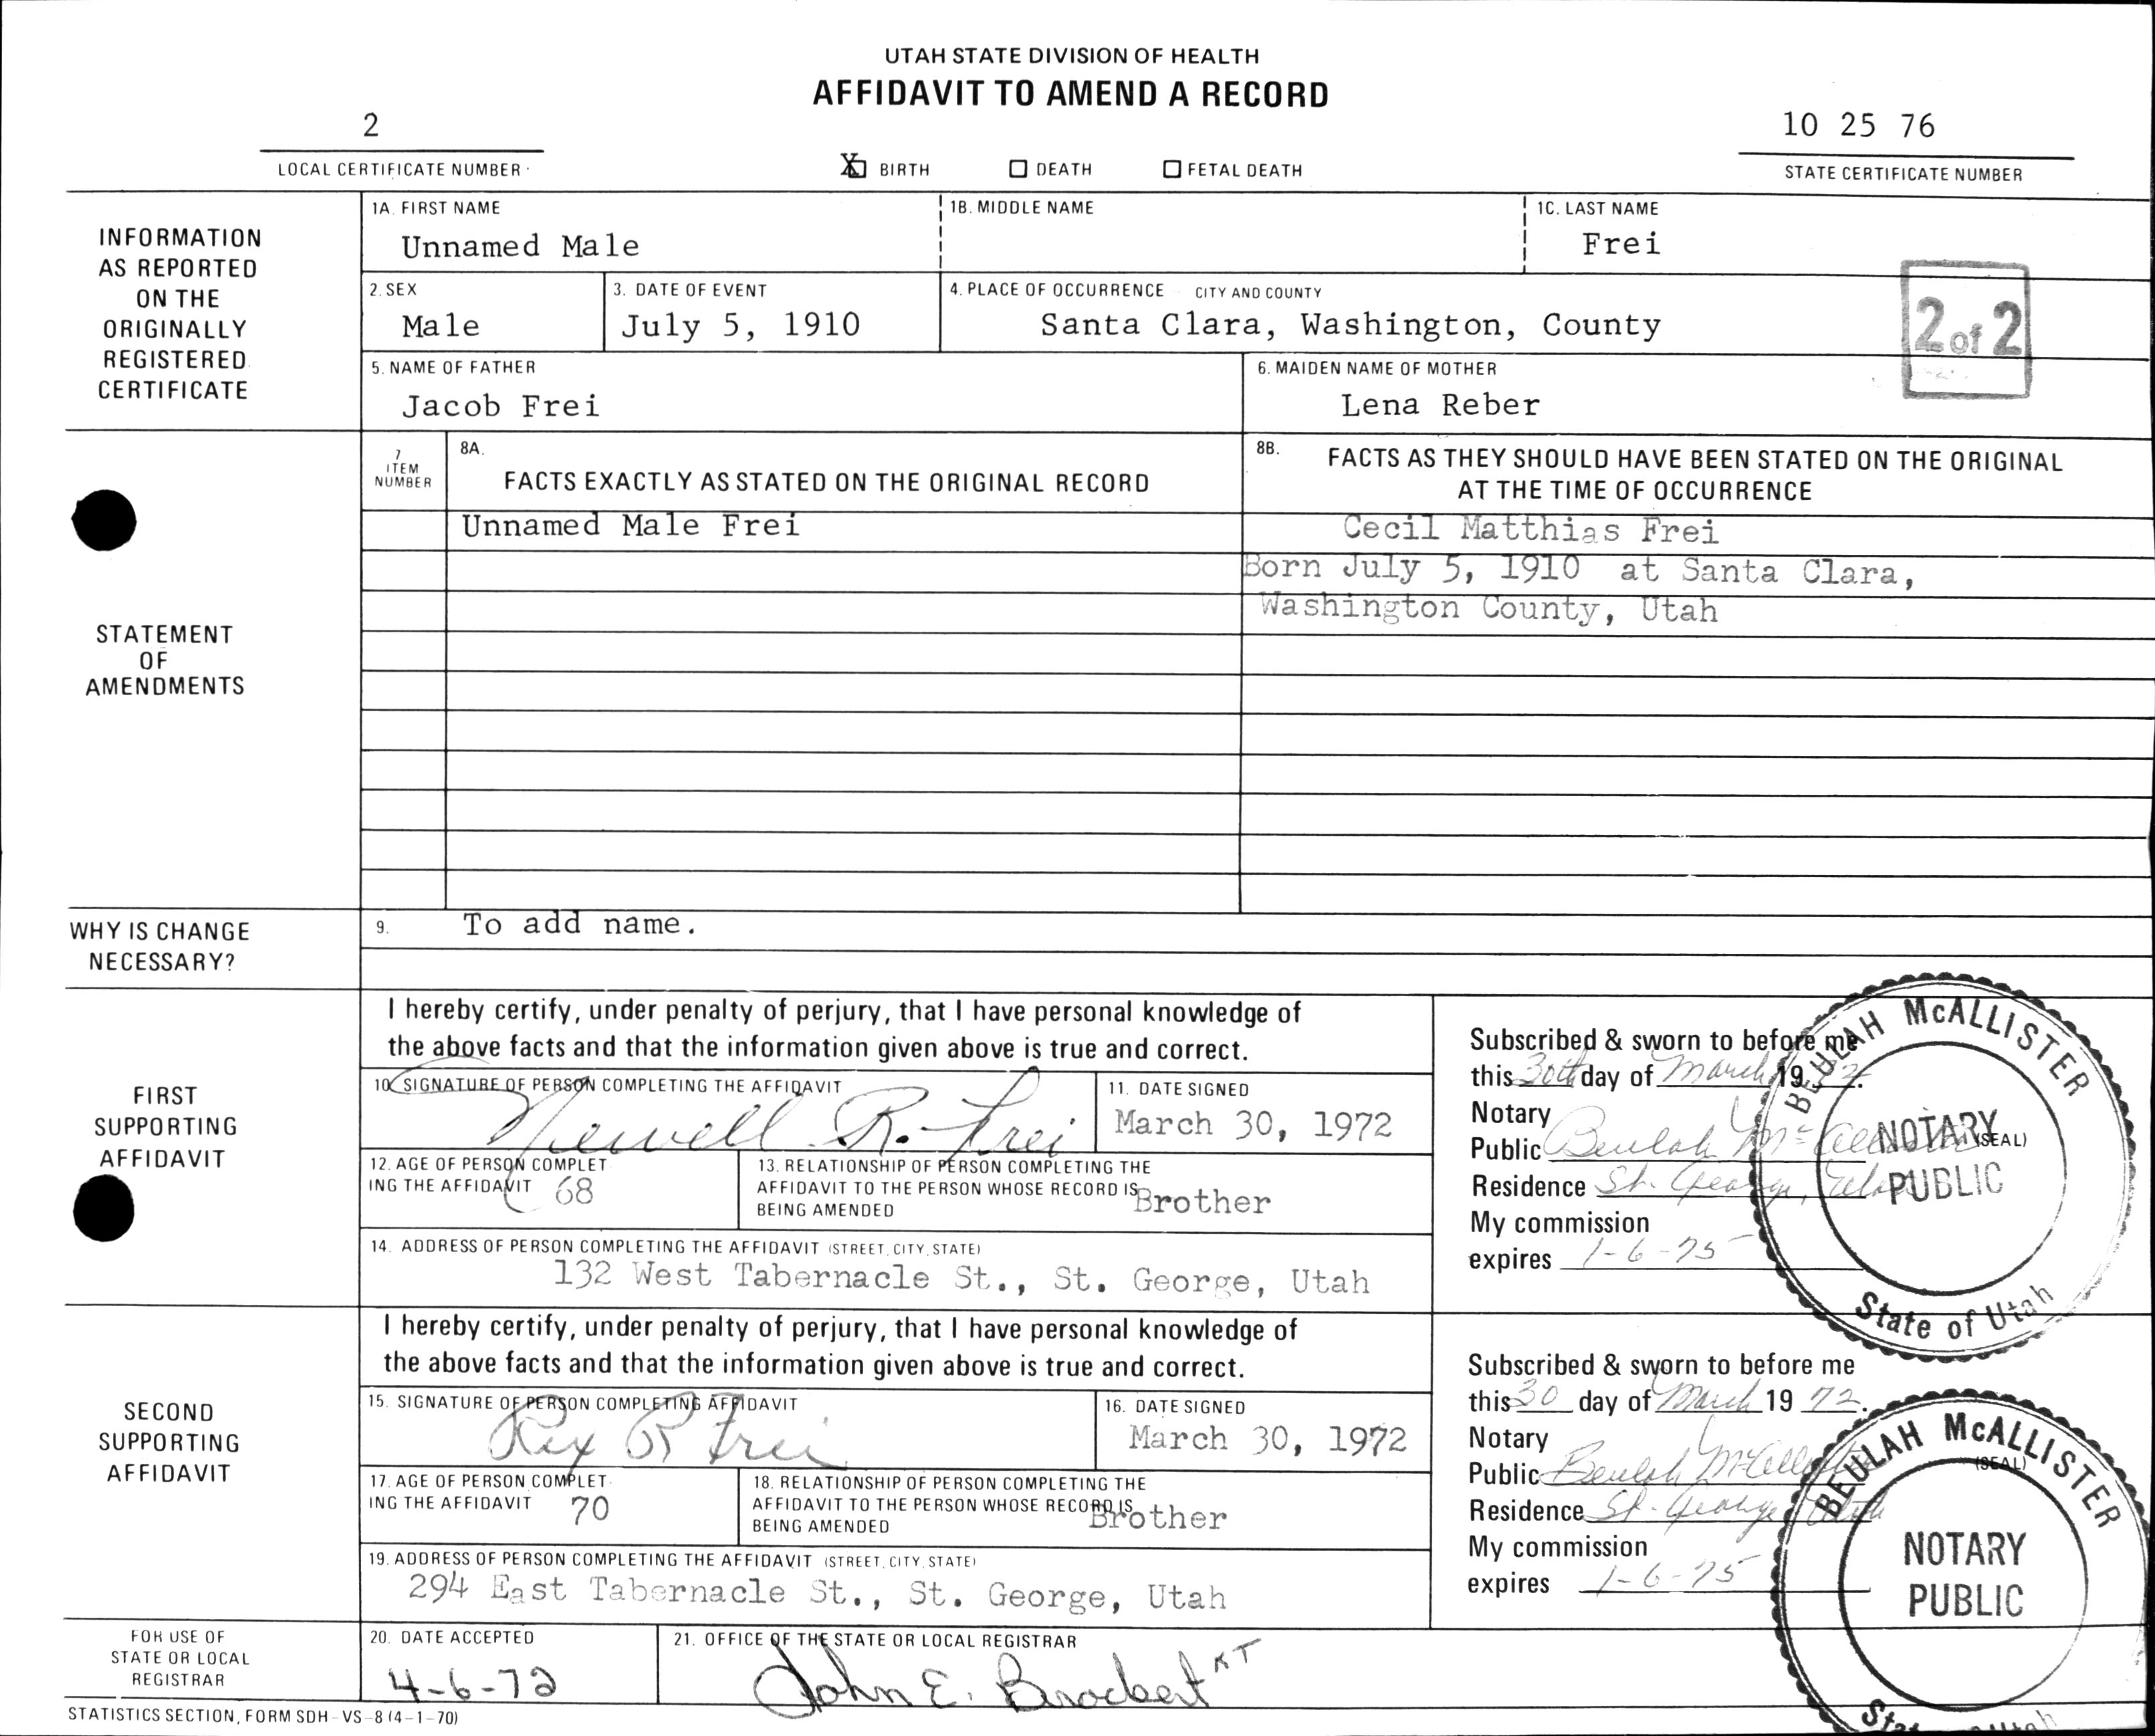 UTAH STATE DIVISION OF HEALTH
AFFIDAVIT TO AMEND A RECORD
2
10 25 76
LOCAL CERTIFICATE NUMBER
X BIRTH DEATH FETAL DEATH
STATE CERTIFICATE NUMBER
INFORMATION
AS REPORTED
ON THE
ORIGINALLY
REGISTERED
CERTIFICATE
1A. FIRST NAME
Unnamed Male
1B. MIDDLE NAME
1C. LAST NAME
Frei
2. SEX
Male
3. DATE OF EVENT
July 5, 1910
4. PLACE OF OCCURRENCE CITY AND COUNTY
Santa Clara, Washington, County
2 of 2
5. NAME OF FATHER
Jacob Frei
6. MAIDEN NAME OF MOTHER
Lena Reber
STATEMENT
OF
AMENDMENTS
7
ITEM
NUMBER
8A.
FACTS EXACTLY AS STATED ON THE ORIGINAL RECORD
8B. FACTS AS THEY SHOULD HAVE BEEN STATED ON THE ORIGINAL
AT THE TIME OF OCCURRENCE
Unnamed Male Frei
Cecil Matthias Frei
Born July 5, 1910 at Santa Clara,
Washington County, Utah
WHY IS CHANGE
NECESSARY?
9. To add name.
FIRST
SUPPORTING
AFFIDAVIT
I hereby certify, under penalty of perjury, that I have personal knowledge of
the above facts and that the information given above is true and correct.
10. SIGNATURE OF PERSON COMPLETING THE AFFIDAVIT
Newell R. Frei
11. DATE SIGNED
March 30, 1972
12. AGE OF PERSON COMPLET-
ING THE AFFIDAVIT 68
13. RELATIONSHIP OF PERSON COMPLETING THE
AFFIDAVIT TO THE PERSON WHOSE RECORD IS
BEING AMENDED
Brother
14. ADDRESS OF PERSON COMPLETING THE AFFIDAVIT (STREET, CITY, STATE)
132 West Tabernacle St., St. George, Utah
Subscribed & sworn to before me
this 30th day of March 1972.
Notary
Public Beulah McAllister (SEAL)
Residence St. George, Utah
My commission
expires 1-6-75
BEULAH McALLISTER
NOTARY
PUBLIC
State of Utah
SECOND
SUPPORTING
AFFIDAVIT
I hereby certify, under penalty of perjury, that I have personal knowledge of
the above facts and that the information given above is true and correct.
15. SIGNATURE OF PERSON COMPLETING AFFIDAVIT
Rex R Frei
16. DATE SIGNED
March 30, 1972
17. AGE OF PERSON COMPLET-
ING THE AFFIDAVIT 70
18. RELATIONSHIP OF PERSON COMPLETING THE
AFFIDAVIT TO THE PERSON WHOSE RECORD IS
BEING AMENDED
Brother
19. ADDRESS OF PERSON COMPLETING THE AFFIDAVIT (STREET, CITY, STATE)
294 East Tabernacle St., St. George, Utah
Subscribed & sworn to before me
this 30 day of March 19 72.
Notary
Public Beulah McAllister (SEAL)
Residence St. George Utah
My commission
expires 1-6-75
BEULAH McALLISTER
NOTARY
PUBLIC
State of Utah
FOR USE OF
STATE OR LOCAL
REGISTRAR
20. DATE ACCEPTED
4-6-72
21. OFFICE OF THE STATE OR LOCAL REGISTRAR
John E. Brockert KT
STATISTICS SECTION, FORM SDH-VS-8 (4-1-70)